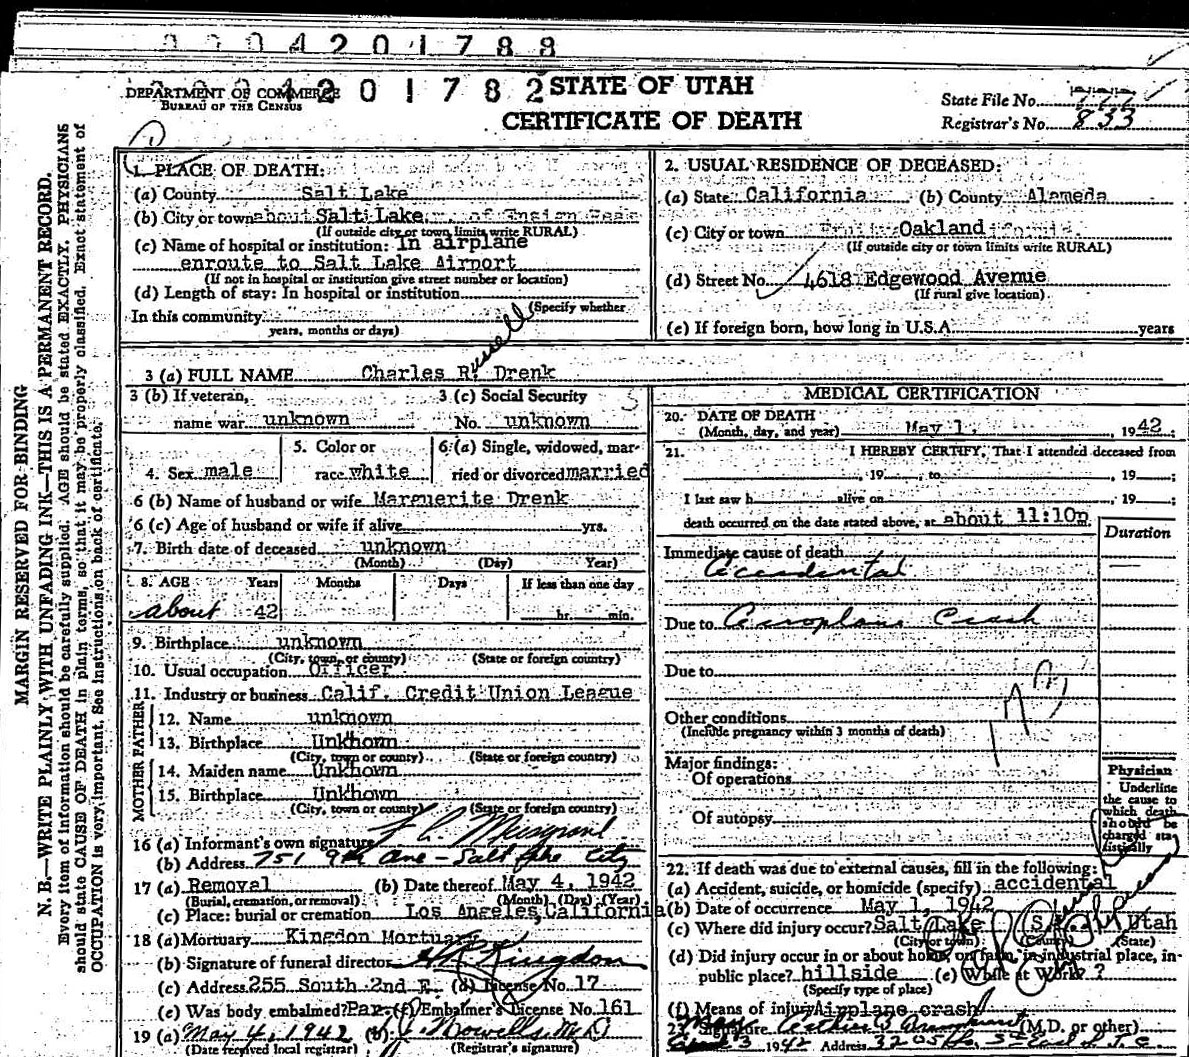 0004201788
DEPARTMENT OF COMMERCE
BUREAU OF THE CENSUS
4201782
STATE OF UTAH
CERTIFICATE OF DEATH
State File No. 777
Registrar's No. 833
MARGIN RESERVED FOR BINDING
N. B.—WRITE PLAINLY WITH UNFADING INK—THIS IS A PERMANENT RECORD.
Every item of information should be carefully supplied. AGE should be stated EXACTLY. PHYSICIANS
should state CAUSE OF DEATH in plain terms, so that it may be properly classified. Exact statement of
OCCUPATION is very important. See instructions on back of certificate.
1. PLACE OF DEATH:
(a) County Salt Lake
(b) City or town about Salt Lake of Ensign Peak
(If outside city or town limits write RURAL)
(c) Name of hospital or institution: In airplane
enroute to Salt Lake Airport
(If not in hospital or institution give street number or location)
(d) Length of stay: In hospital or institution
(Specify whether
In this community
years, months or days)
2. USUAL RESIDENCE OF DECEASED:
(a) State California (b) County Alameda
(c) City or town Oakland
(If outside city or town limits write RURAL)
(d) Street No. 4618 Edgewood Avenue
(If rural give location)
(e) If foreign born, how long in U.S.A. years
Russell
3 (a) FULL NAME Charles R. Drenk
3 (b) If veteran, 3 (c) Social Security
name war unknown No. unknown
4. Sex male 5. Color or race white 6 (a) Single, widowed, married or divorced married
6 (b) Name of husband or wife Marguerite Drenk
6 (c) Age of husband or wife if alive yrs.
7. Birth date of deceased unknown
(Month) (Day) Year)
8. AGE Years Months Days If less than one day
about 42 hr. min.
9. Birthplace unknown
(City, town, or county) (State or foreign country)
10. Usual occupation Officer
11. Industry or business Calif. Credit Union League
FATHER
12. Name unknown
13. Birthplace Unkhown
(City, town or county) (State or foreign country)
MOTHER
14. Maiden name Unkhown
15. Birthplace Unkhown
(City, town or county) (State or foreign country)
16 (a) Informant's own signature
(b) Address 751 9th Ave - Salt Lake City
17 (a) Removal (b) Date thereof May 4, 1942
(Burial, cremation, or removal) (Month) (Day) (Year)
(c) Place: burial or cremation Los Angeles, California
18 (a) Mortuary Kingdon Mortuary
(b) Signature of funeral director Kingdon
(c) Address 255 South 2nd E. (d) License No. 17
(e) Was body embalmed? Par. (f) Embalmer's License No. 161
19 (a) May 4, 1942 (b)
(Date received local registrar) (Registrar's signature)
MEDICAL CERTIFICATION
20. DATE OF DEATH
(Month, day, and year) May 1, 1942
21. I HEREBY CERTIFY, That I attended deceased from
, 19 , to , 19 ;
I last saw h alive on , 19 ;
death occurred on the date stated above, at about 11:10p m.
Duration
Immediate cause of death
accidental
Due to Aeroplane Crash
Due to
Other conditions
(Include pregnancy within 3 months of death)
Major findings:
Of operations
Of autopsy
Physician
Underline
the cause to
which death
should be
charged sta-
tistically
22. If death was due to external causes, fill in the following:
(a) Accident, suicide, or homicide (specify) accidental
(b) Date of occurrence May 1, 1942
(c) Where did injury occur? Salt Lake S. L. Utah
(City or town) (County) (State)
(d) Did injury occur in or about home, on farm, in industrial place, in
public place? hillside (e) While at Work?
(Specify type of place)
(f) Means of injury Airplane crash
23. Signature (M.D. or other)
3 1942 Address